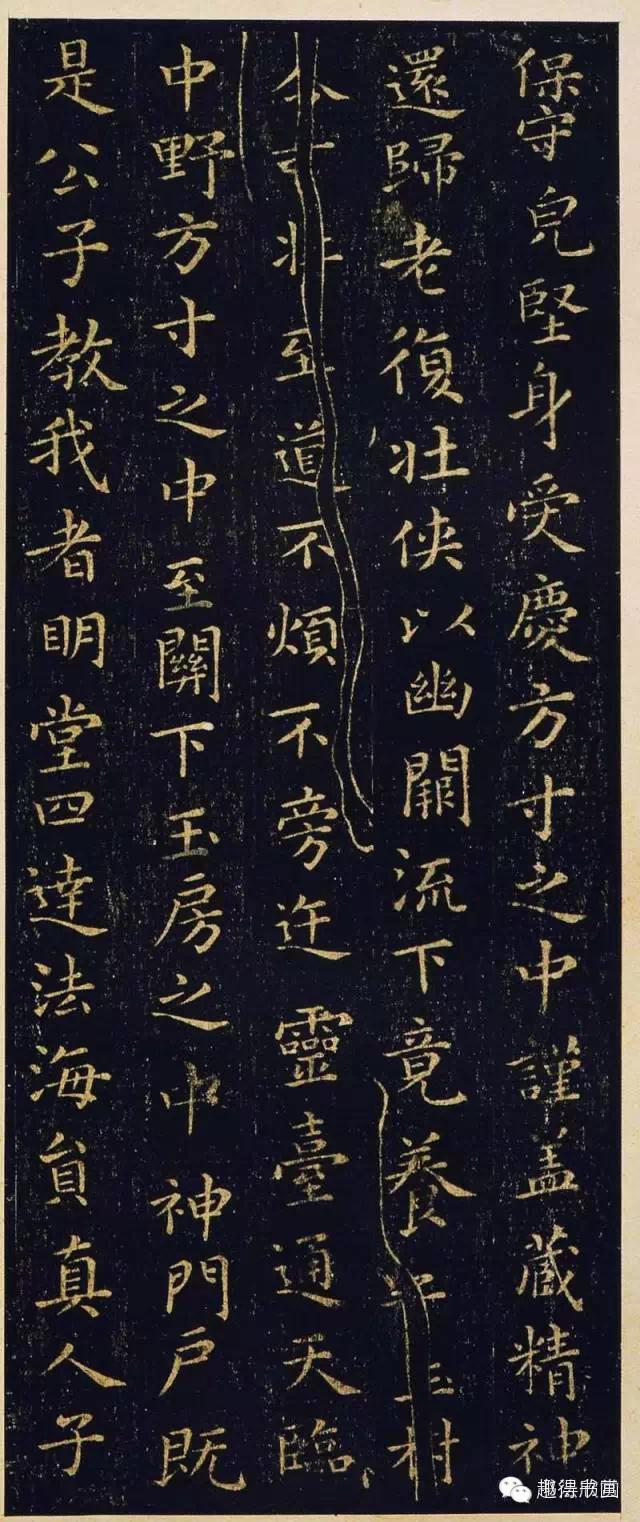 保守皃堅身受慶方寸之中謹盖蔵精神
還歸老復壮侠以幽闕流下竟養子玉樹
令可壮至道不煩不旁迕靈臺通天臨
中野方寸之中至關下玉房之中神門戶既
是公子教我者明堂四達法海員真人子